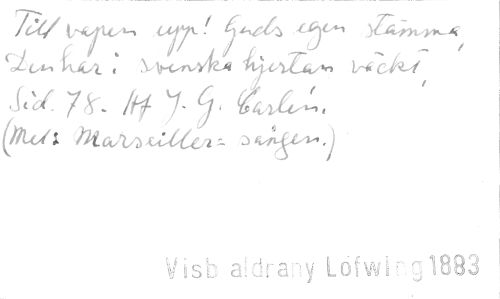 Till vapen upp! Guds egen stämma,
Den har i svenska hjertan väckt,
Sid. 78. Af J. G. Carlén.
(Mel: Marseiller= sången.)
Visb aldrany Löfwing 1883